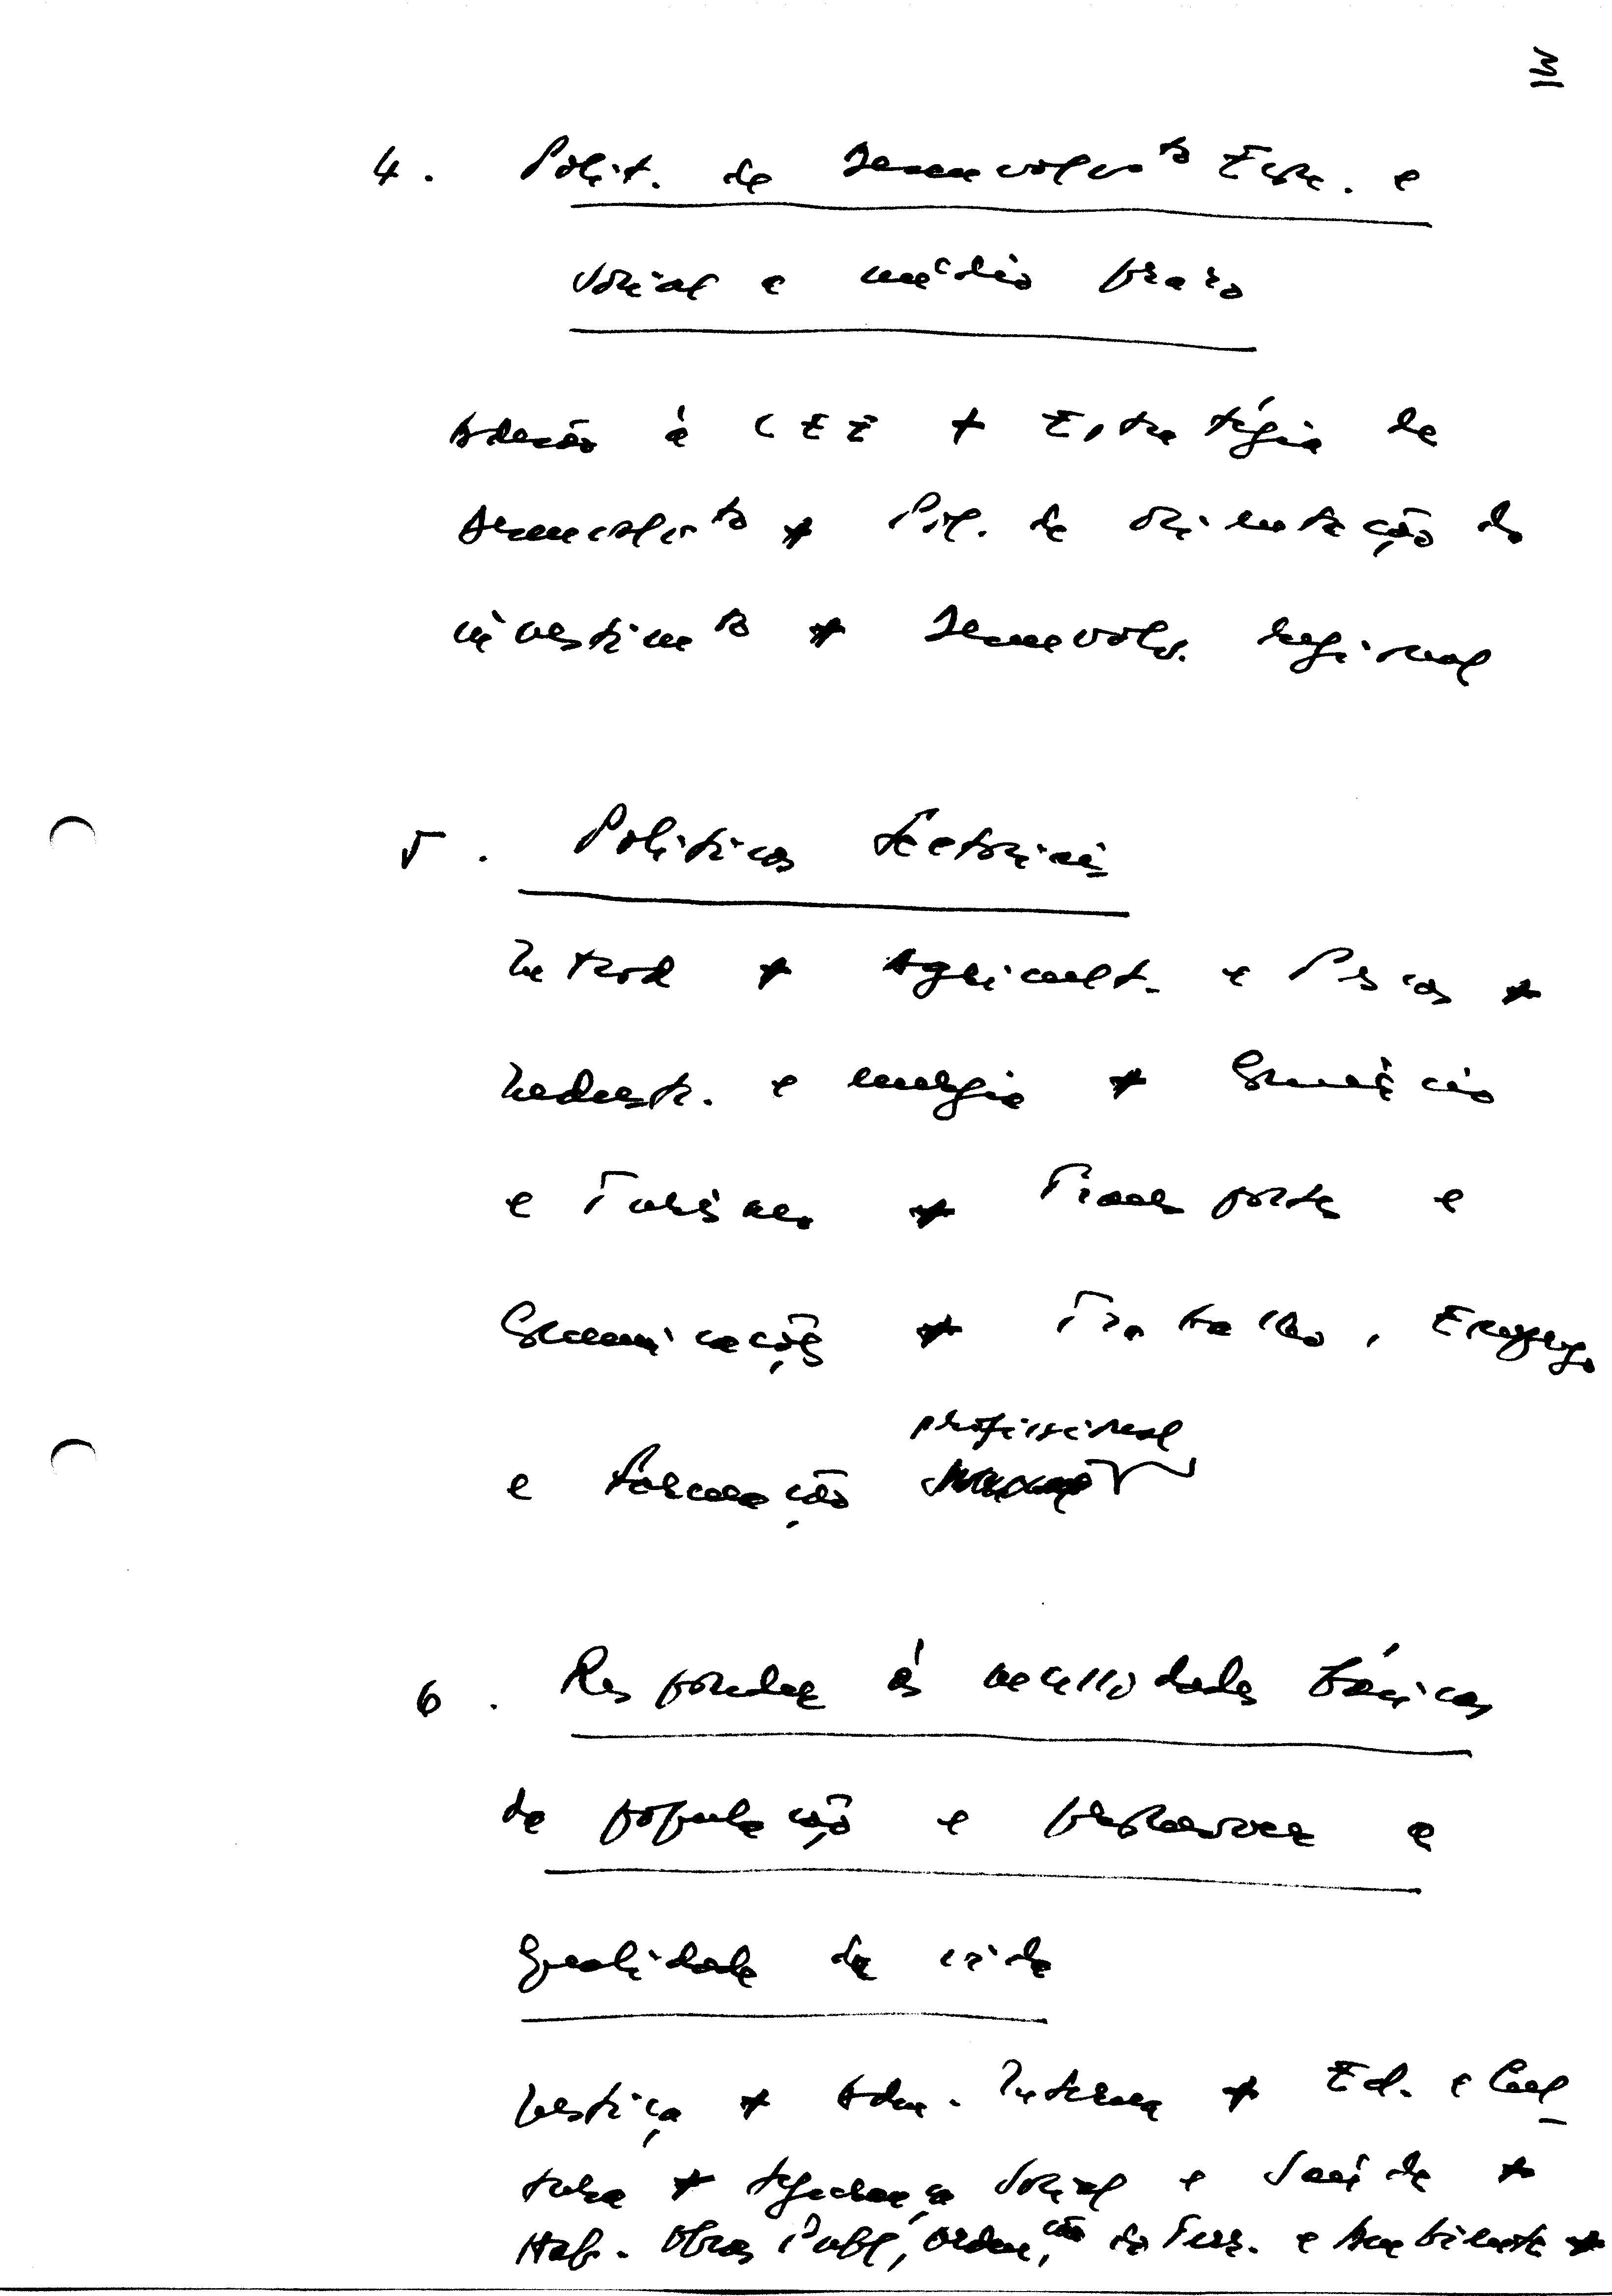 3
4. Polit. de Desenvolvto Econ. e
Social a médio prazo
Adesão à CEE * Estratégia de
desenvolvto * Pol. de orientação do
investimto * Desenvolv. regional
5. Politicas Sectoriais
Introd * Agricult. e Pescas *
Indust. e energia * Comércio
e Turismo * Transportes e
Comunicações * Trabalho, Emprego
profissional
e Formação
6. Responder às necessidades básicas
da população e preservar a
qualidade de vida
Justiça * Adm. Interna * Ed. e Cul
tura * Segurança Social e Saúde *
Hab. Obras Publ, Ordenção do Terr. e Ambiente *